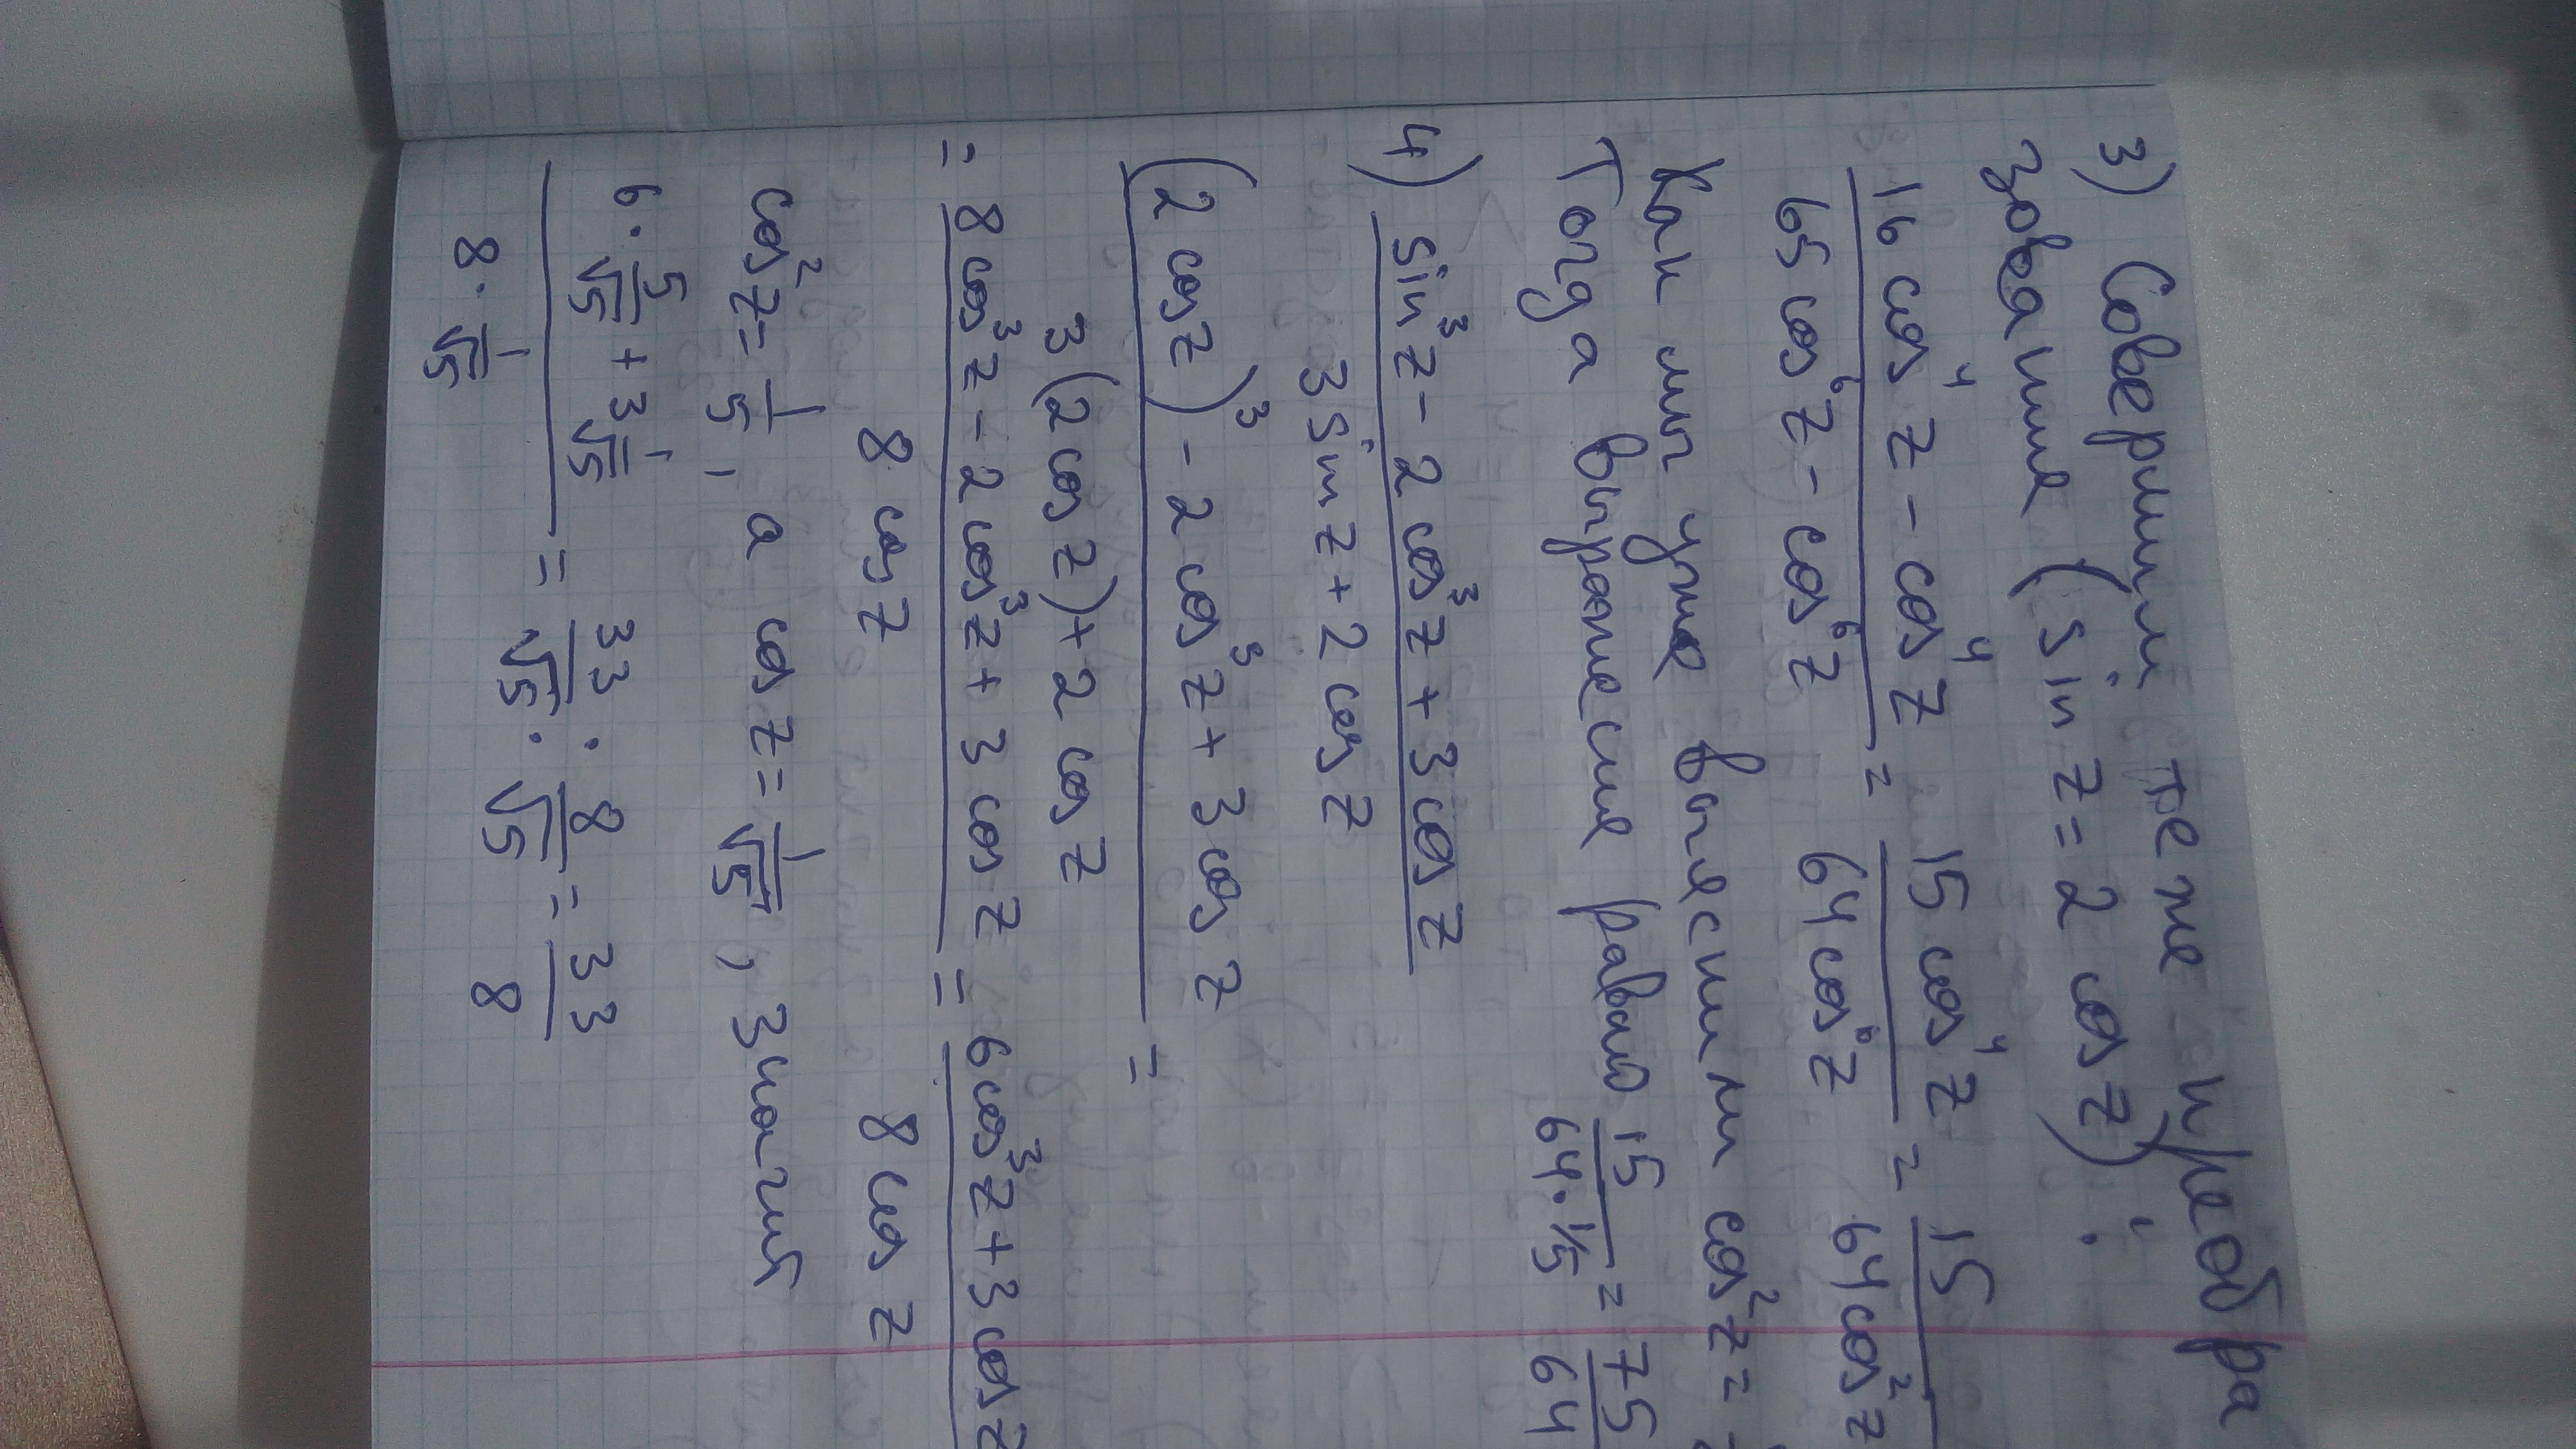 3) Совершим те же преобра
зование (sin z = 2 cos z):
16 cos⁴ z - cos⁴ z = 15 cos⁴ z = 15
65 cos⁶ z - cos⁶ z 64 cos⁶ z 64 cos² z
Как мы уже выяснили cos² z =
Тогда выражение равно 15 = 75
64 · 1/5 64
4) sin³ z - 2 cos³ z + 3 cos z
3 sin z + 2 cos z
(2 cos z)³ - 2 cos³ z + 3 cos z =
3 (2 cos z) + 2 cos z
= 8 cos³ z - 2 cos³ z + 3 cos z = 6 cos³ z + 3 cos z
8 cos z 8 cos z
cos² z = 1/5, а cos z = 1/√5, значит
6 · 5/√5 + 3 1/√5 = 33/√5 : 8/√5 = 33/8
8 · 1/√5